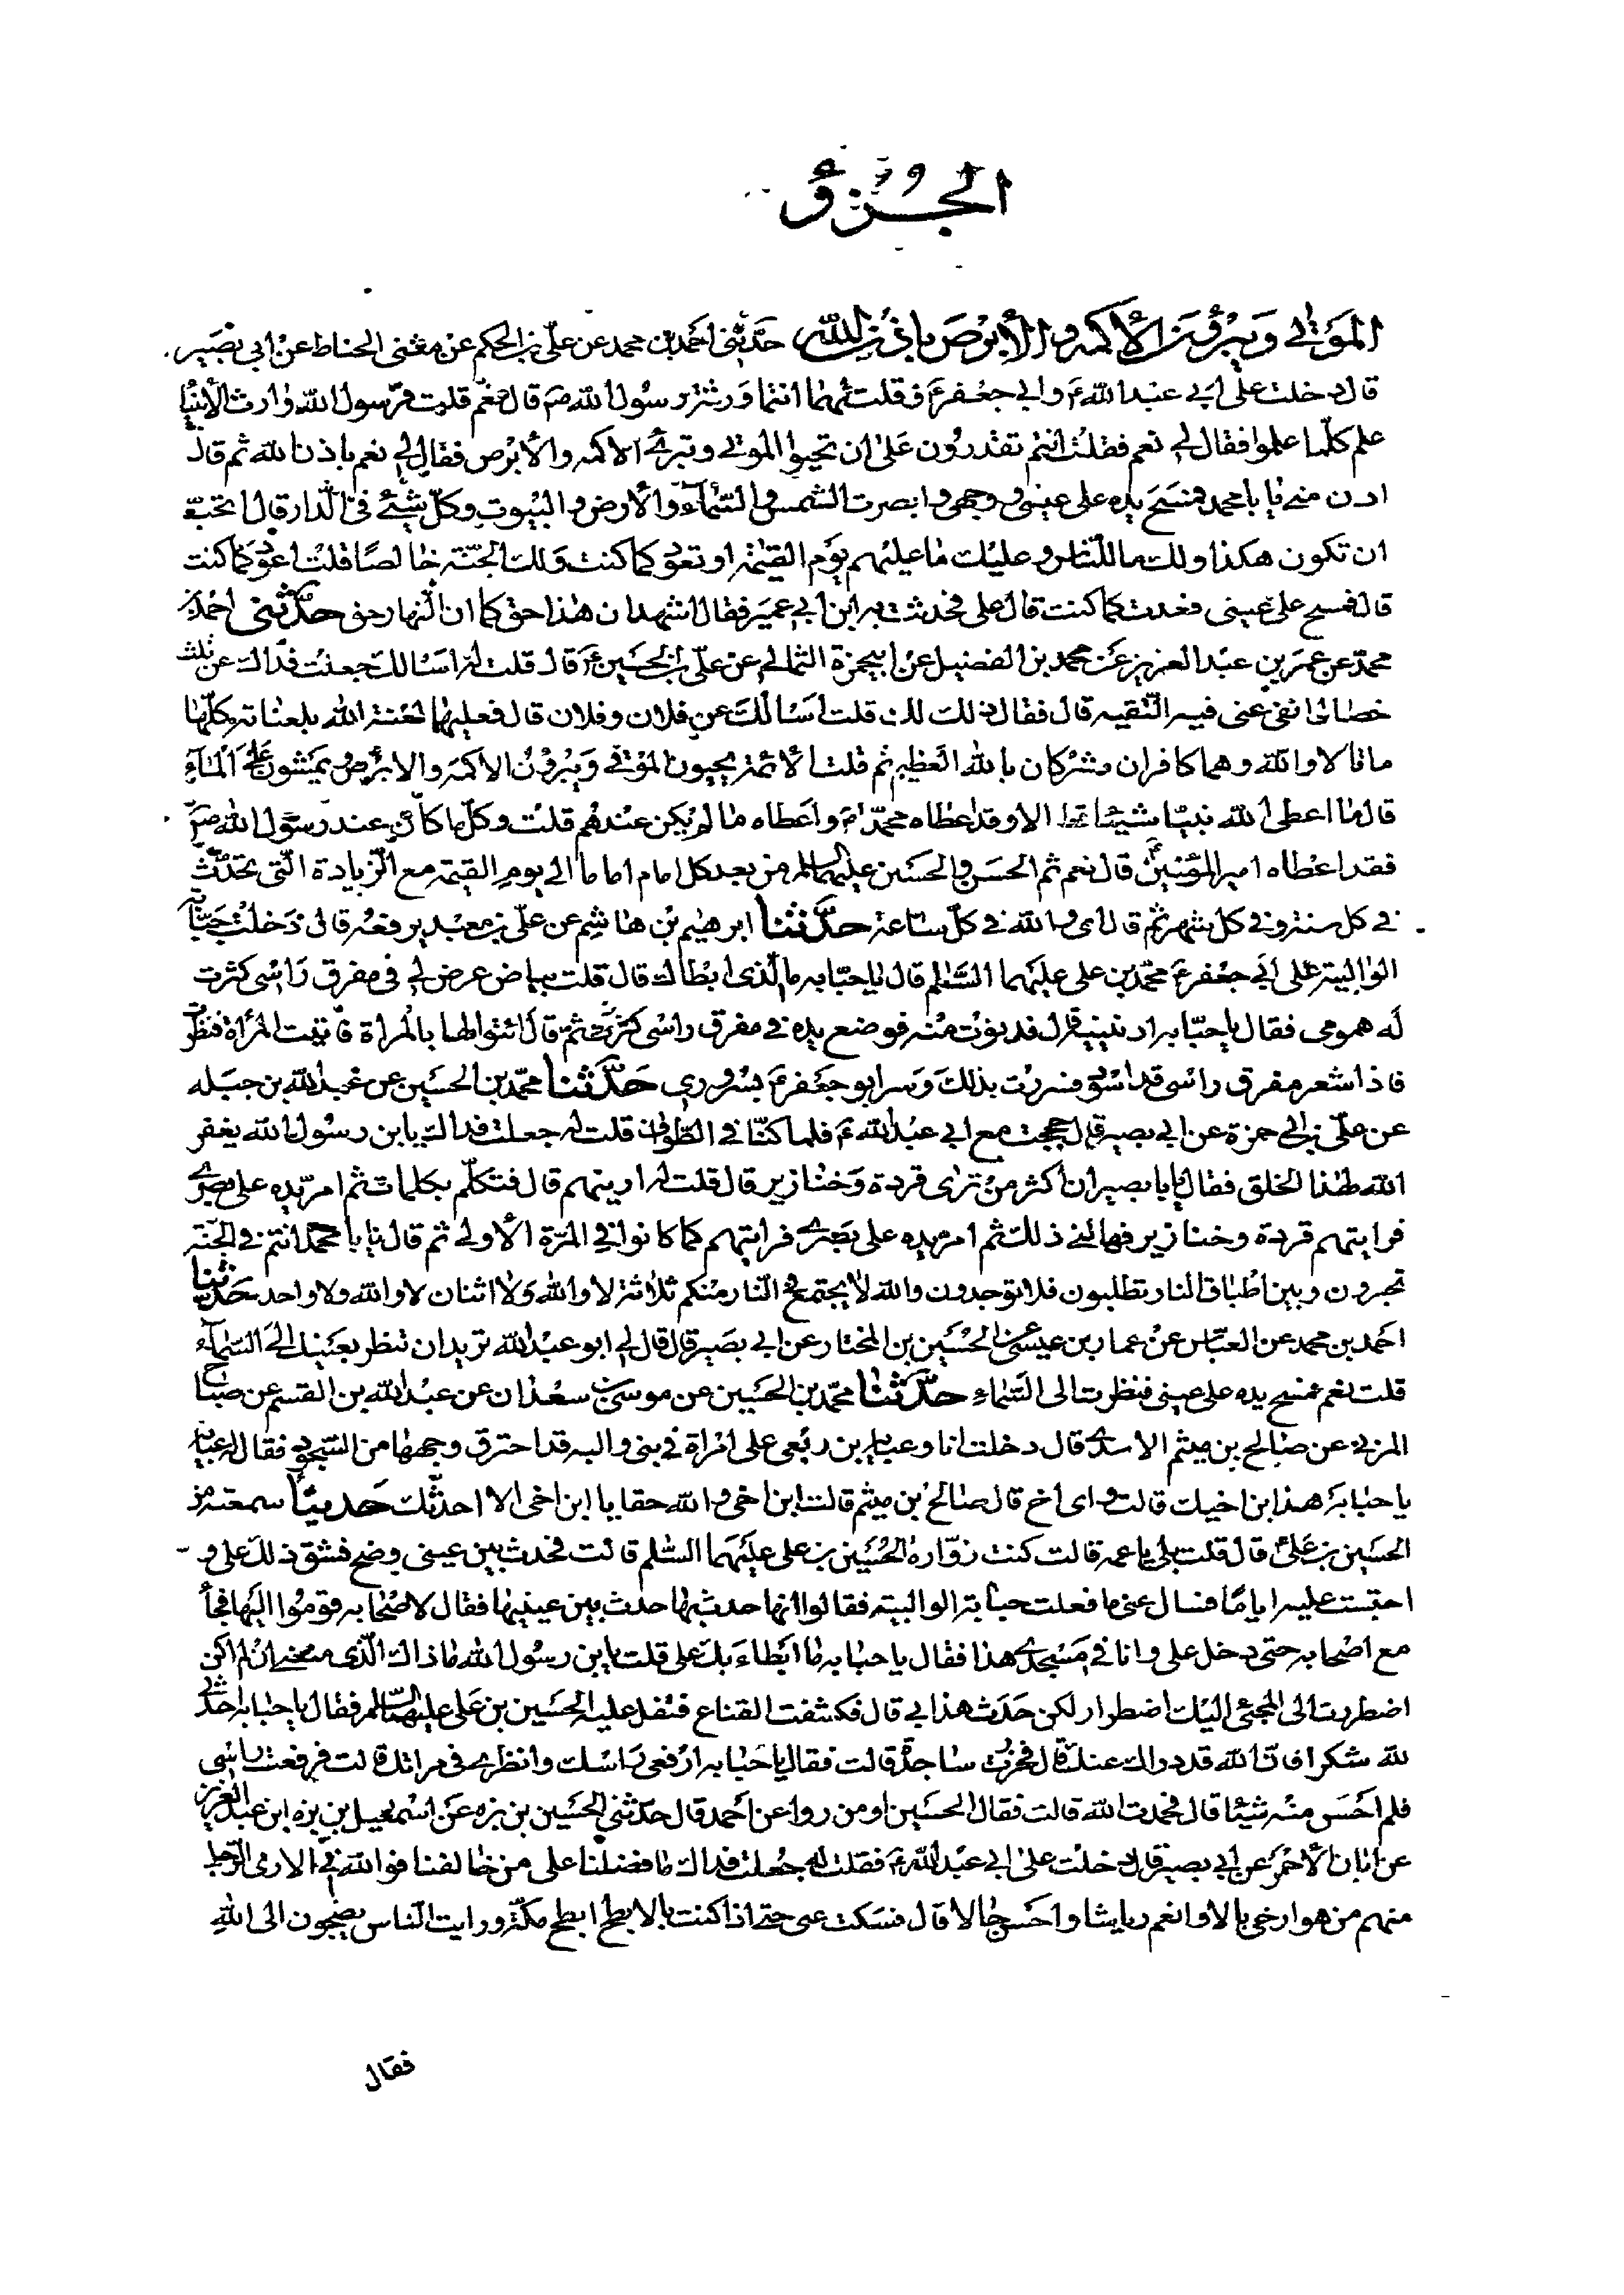 الجُزؤُ
الموتى ويبرؤن الأكمه والأبرص باذن الله حدثنى احمد بن محمد عن على بن الحكم عن مثنى الحناط عن ابى بصير
قال دخلت على ابى عبد الله ع وابى جعفر ع فقلت لهما انتما ورثة رسول الله ص قال نعم قلت فرسول الله وارث الأنبيا
علم كلما علموا فقال لى نعم فقلت انتم تقدرون على ان تحيوا الموتى وتبرئ الاكمه والأبرص فقال لى نعم باذن الله ثم قال
ادن منى يا با محمد فمسح يده على عينى ووجهى وابصرت الشمس والسماء والأرض والبيوت وكل شيئ فى الدار قال اتحب
ان تكون هكذا ولك ما للناس وعليك ما عليهم يوم القيمة او تعود كما كنت ولك الجنة خالصا قلت اعود كما كنت
قال فمسح على عينى فعدت كما كنت قال على فحدثت به ابن ابى عمير فقال اشهد ان هذا حق كما ان النهار حق حدثنى احمد بن
محمد عن عمر بن عبد العزيز عن محمد بن الفضيل عن ابيحمزة الثمالى عن على بن الحسين ع قال قلت له اسالك جعلت فداك عن ثلث
خصال انفى عنى فيه التقيه قال فقال ذلك لك قلت اسالك عن فلان وفلان قال فعليهما لعنة الله بلعناته كلها
ماتا لا والله وهما كافران مشركان بالله العظيم ثم قلت الأئمة يحيون الموتى ويبرؤن الاكمه والابرص ويمشون على الماء
قال ما اعطى الله نبيا شيئا قط الا وقد اعطاه محمدا ص واعطاه ما لم يكن عندهم قلت وكل ما كان عند رسول الله ص
فقد اعطاه امير المؤمنين ع قال نعم ثم الحسن والحسين عليهما السلام من بعد كل امام اماما الى يوم القيمة مع الزيادة التى تحدث
فى كل سنة وفى كل شهر ثم قال اى والله فى كل ساعة حدثنا ابرهيم بن هاشم عن على بن معبد يرفعه قال دخلت حبابه
الوالبية على ابى جعفر ع محمد بن على عليهما السلام قال يا حبابه ما الذى ابطاك قال قلت بياض عرض لى فى مفرق راسى كثرت
له همومى فقال يا حبابه ارينيه قال فدنوت منه فوضع يده فى مفرق راسى ثم قال ائتوا لها بالمرأة فاتيت المرأة فنظرت
فاذا شعر مفرق راسى قد اسود فسررت بذلك وسر ابو جعفر ع بسرورى حدثنا محمد بن الحسين عن عبد الله بن جبله
عن على بن ابى حمزة عن ابى بصير قال حججت مع ابى عبد الله ع فلما كنا فى الطواف قلت له جعلت فداك يا ابن رسول الله يغفر
الله لهذا الخلق فقال يا با بصير ان اكثر من ترى قردة وخنازير قال قلت له ارينهم قال فتكلم بكلمات ثم امر يده على بصرى
فرايتهم قردة وخنازير فهالنى ذلك ثم امر يده على بصرى فرايتهم كما كانوا فى المرة الأولى ثم قال يا با محمد انتم فى الجنة
تحبرون وبين اطباق النار تطلبون فلا توجدون والله لا يجتمع فى النار منكم ثلاثة لا والله ولا اثنان لا والله ولا واحد حدثنا
احمد بن محمد عن العباس عن عمار بن عيسى عن الحسين بن المختار عن ابى بصير قال قال لى ابو عبد الله تريد ان تنظر بعينك الى السماء
قلت نعم فمسح يده على عينى فنظرت الى السماء حدثنا محمد بن الحسين عن موسى بن سعدان عن عبد الله بن القسم عن صباح
المزنى عن صالح بن ميثم الاسدى قال دخلت انا وعبايه بن ربعى على امرأة فى بنى والبه قد احترق وجهها من السجود فقال لها عبايه
يا حبابه هذا ابن اخيك قالت واى اخ قال صالح بن ميثم قالت ابن اخى والله حقا يا ابن اخى الا احدثك حديثا سمعته من
الحسين بن على قال قلت بلى يا عمه قالت كنت زواره الحسين بن على عليهما السلم قالت فحدث بين عينى وضح فشق ذلك على و
احتبست عليه اياما فسال عنى ما فعلت حبابة الوالبيه فقالوا انها حدث بها حدث بين عينيها فقال لاصحابه قوموا اليها فجاء
مع اصحابه حتى دخل على وانا فى مسجدى هذا فقال يا حبابه ما ابطاء بك على قلت يا ابن رسول الله ما ذاك الذى منعنى ان لم اكن
اضطررت الى المجئ اليك اضطرار لكن حدث هذا بى قال فكشفت القناع فتفل عليه الحسين بن على عليهما السلام فقال يا حبابه احدثى
لله شكرا فان الله قد درأه عنك قال فخررت ساجدة قالت فقال يا حبابه ارفعى راسك وانظرى فى مراتك قالت فرفعت راسى
فلم احس منه شيئا قال فحمدت الله قالت فقال الحسين او من روا عن احمد قال حدثنى الحسين بن بزه عن اسمعيل بن بزه ابن عبد العزيز
عن ابان الأحمر عن ابى بصير قال دخلت على ابى عبد الله ع فقلت له جعلت فداك ما فضلنا على من خالفنا فو الله انى لارى الرجل
منهم من هو ارخى بالا وانعم رياشا واحسن حالا قال فسكت عنى حتى اذا كنت بالابطح ابطح مكة ورايت الناس يضجون الى الله
فقال